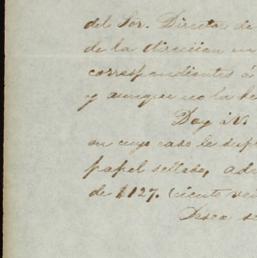 del Sor. Director de
de la direccion en
correspondientes á
y aunque no la he
Doy á V.
en cuyo caso le supl
papel sellado, ad
de $127. (ciento vei
Deseo se